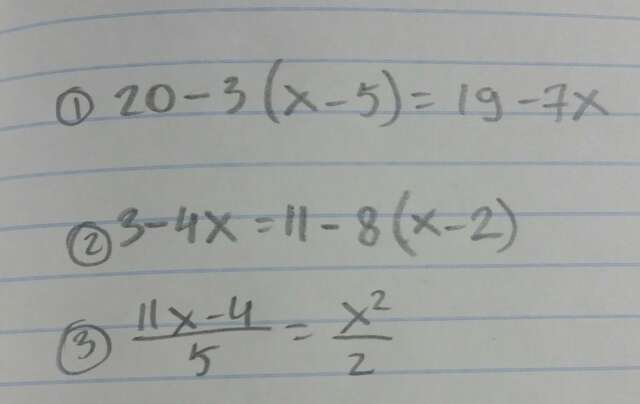 ① 20 - 3(x - 5) = 19 - 7x
② 3 - 4x = 11 - 8(x - 2)
③ (11x - 4)/5 = x²/2